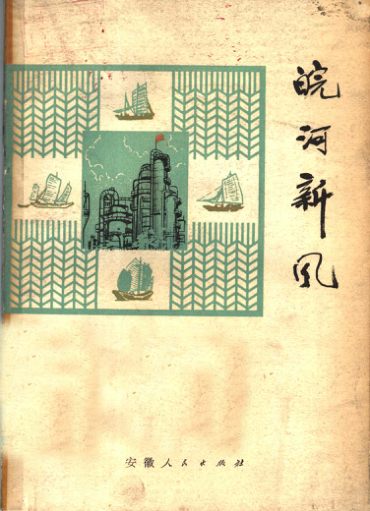 皖河新风
安徽人民出版社